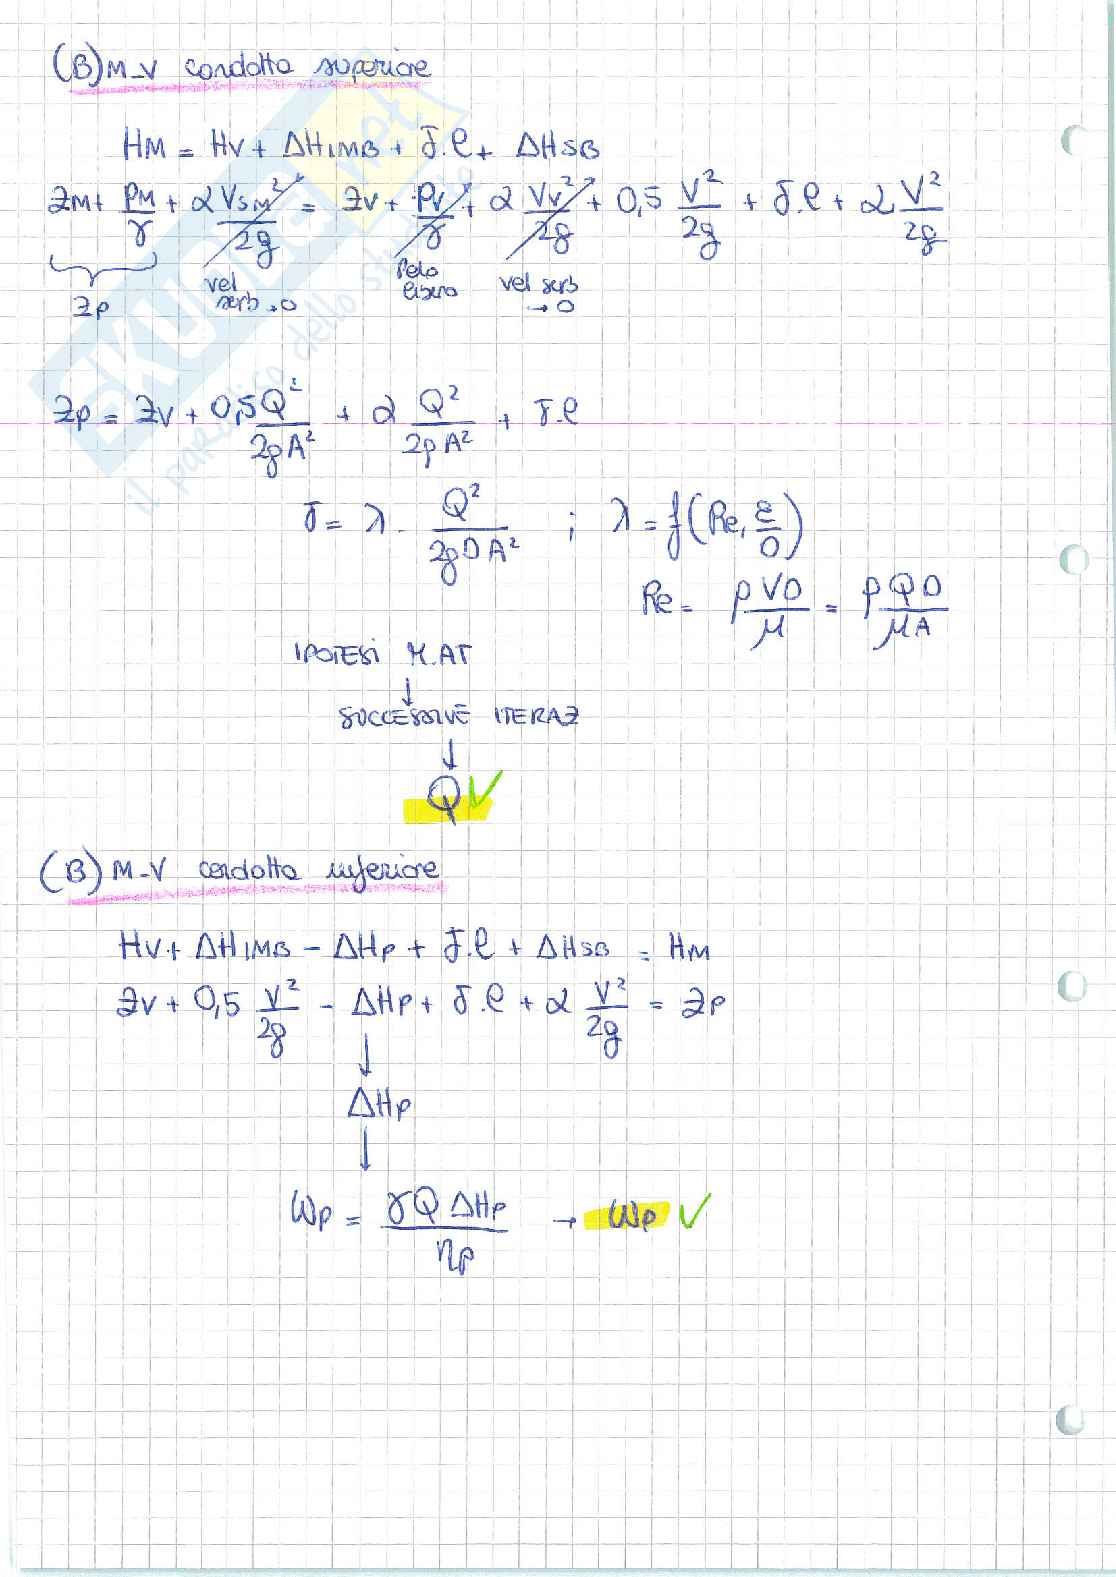 (B) M-V condotta superiore
HM = HV + ΔHIMB + J.l + ΔHSB
ZM + PM/γ + α VSM²/2g = ZV + PV/γ + α VV²/2g + 0,5 V²/2g + J.l + α V²/2g
ZP
vel serb → 0
Pelo libero
vel serb → 0
ZP = ZV + 0,5 Q²/2gA² + α Q²/2gA² + J.l
J = λ · Q²/2gDA² ; λ = f(Re, ε/D)
Re = ρVD/μ = ρQD/μA
IPOTESI M.AT
↓
SUCCESSIVE ITERAZ
↓
Q ✓
(B) M-V condotta inferiore
HV + ΔHIMB - ΔHP + J.l + ΔHSB = HM
ZV + 0,5 V²/2g - ΔHP + J.l + α V²/2g = ZP
↓
ΔHP
↓
WP = γQ ΔHP/ηP → WP ✓
SKUOLA.net
il paradiso dello studente